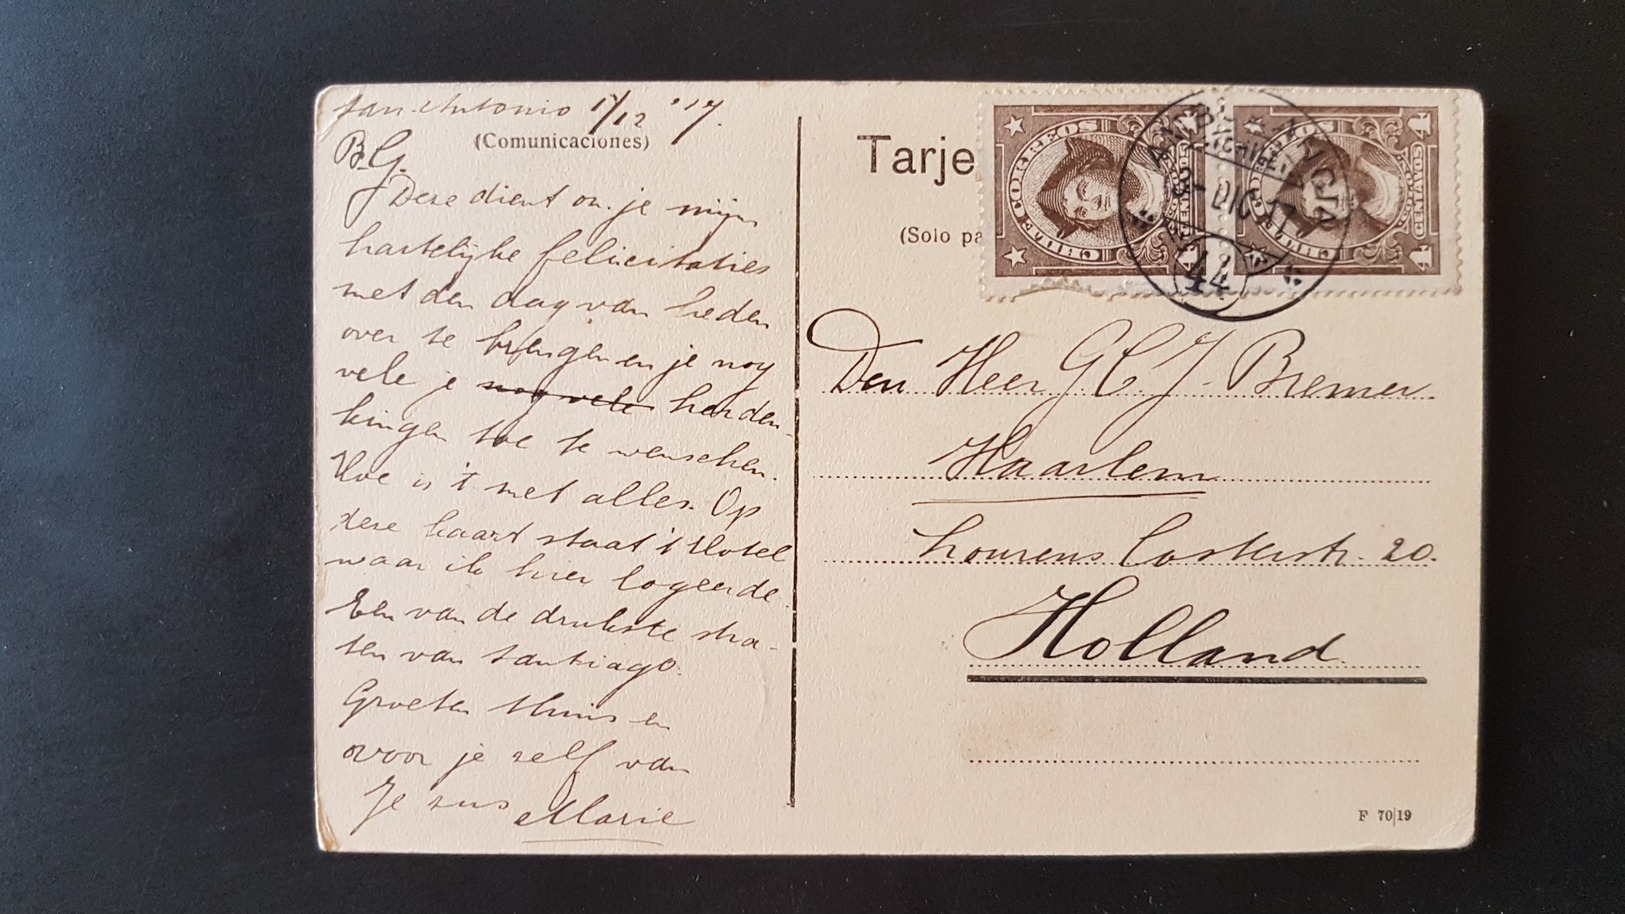 San Antonio 1/12 '17.
(Comunicaciones)
B.G.
Deze dient om je mijn
hartelijke felicitaties
met den dag van heden
over te brengen en je nog
vele je nog vele herden-
kingen toe te wenschen.
Hoe is 't met alles. Op
deze kaart staat 't Hotel
waar ik hier logeerde.
Een van de drukste stra-
ten van Santiago.
Groeten thuis en
voor je zelf van
Je zus Marie
Tarje
(Solo pa
CORREOS
CHILE
CENTAVOS
4
CORREOS
CHILE
4 CENTAVOS 4
DIC 17
44
Den Heer G C J. Bremer.
Haarlem
Lourens Costerstr. 20.
Holland
F 70|19